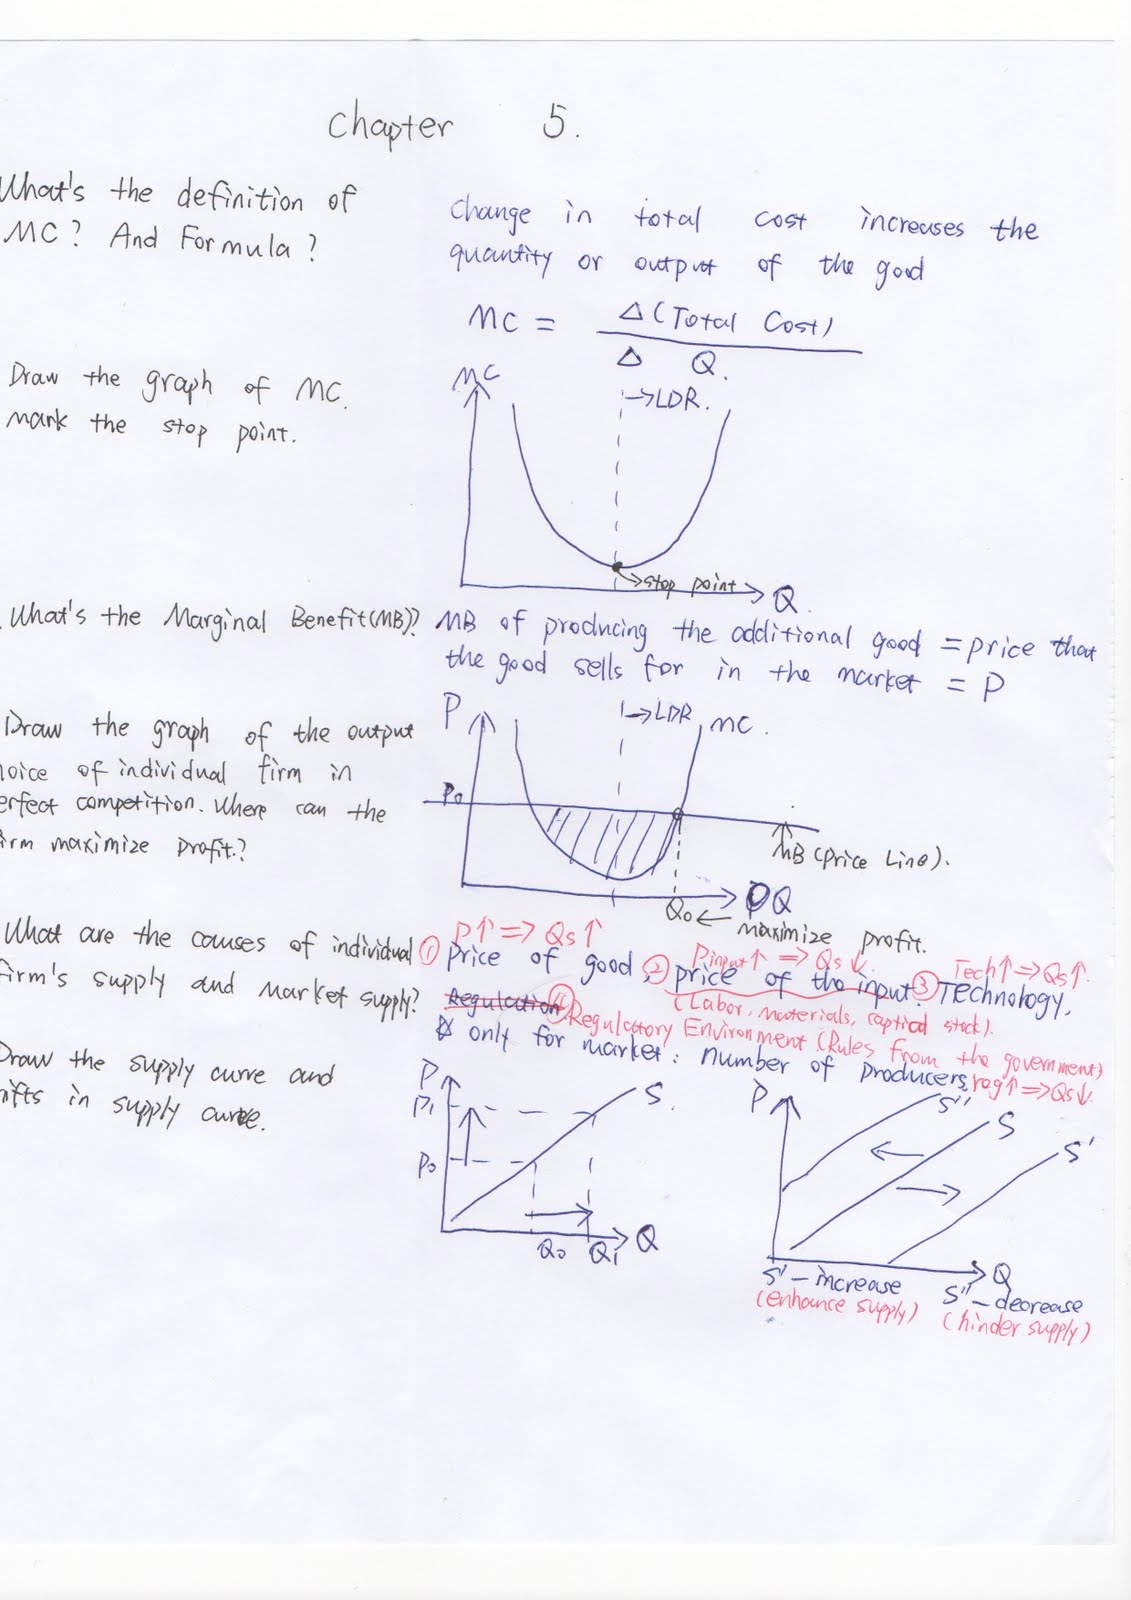 Chapter 5.
What's the definition of
MC? And Formula?
change in total cost increases the
quantity or output of the good
MC = Δ(Total Cost)
Δ Q.
Draw the graph of MC.
mark the stop point.
MC
→LDR.
→stop point
Q.
What's the Marginal Benefit(MB)?
MB of producing the additional good = price that
the good sells for in the market = P
Draw the graph of the output
hoice of individual firm in
erfect competition. Where can the
irm maximize profit?
P
→LDR
MC.
P0
MB (Price Line).
Q0
Q
← maximize profit.
What are the causes of individual
firm's supply and market supply?
P↑ => Qs↑
Pinput↑ => Qs↓.
Tech↑ => Qs↑.
① price of good ② price of the input. ③ Technology.
(Labor, materials, captial stock).
Regulation ④ Regulatory Environment (Rules from the government)
only for market: number of producers.
reg↑ => Qs↓.
Draw the supply curve and
hifts in supply curve.
P
P1
P0
S.
Q0
Q1
Q
P
S''
S
S'
Q
S' - increase
(enhance supply)
S'' - decrease
(hinder supply)